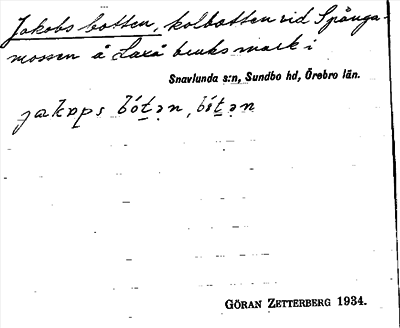 Jakobs botten, kolbotten vid Spånga-
mossen å Laxå bruks mark i
Snavlunda s:n, Sundbo hd, Örebro län.
jakɒps bót̠ən, bót̠ən
GÖRAN ZETTERBERG 1934.